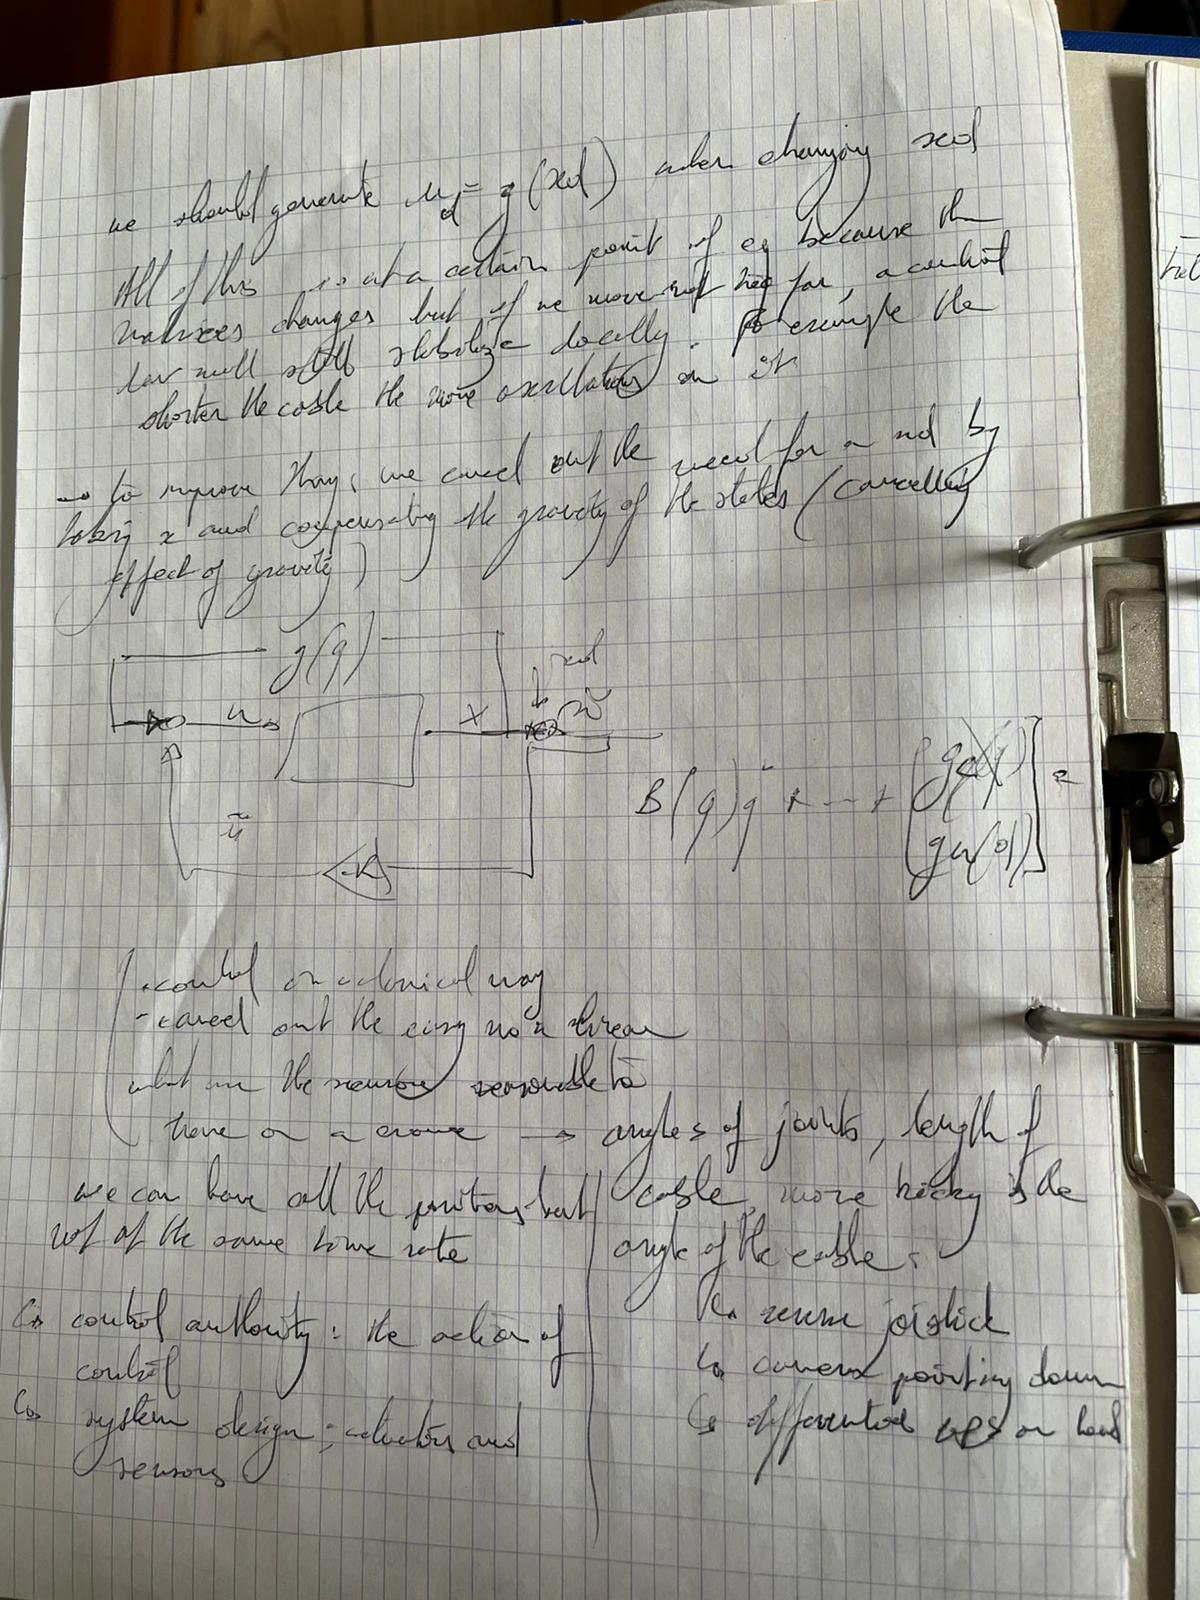 we should generate u_d = g(xd) when changing xd
All of this is at a certain point of eq because the
matrices changes but if we move not too far, a control
law will still stabilize locally. For example the
shorter the cable the more oscillations on it
→ to improve things we cancel out the need for a xd by
taking x and compensating the gravity of the states (cancelling
effect of gravity)
g(q)
xd
u
x
x̃
ũ
-K
B(q)q̈ + --- +
=
- control in a clonical way
- cancel out the easy non linear
what are the sensors reasonable to
have on a crane → angles of joints, length of
cable, more tricky is the
angle of the cable:
we can have all the positions but
not at the same time rate
↳ reverse joistick
↳ camera pointing down
↳ differential GPS on load
↳ control authority: the action of
control
↳ system design: actuators and
sensors